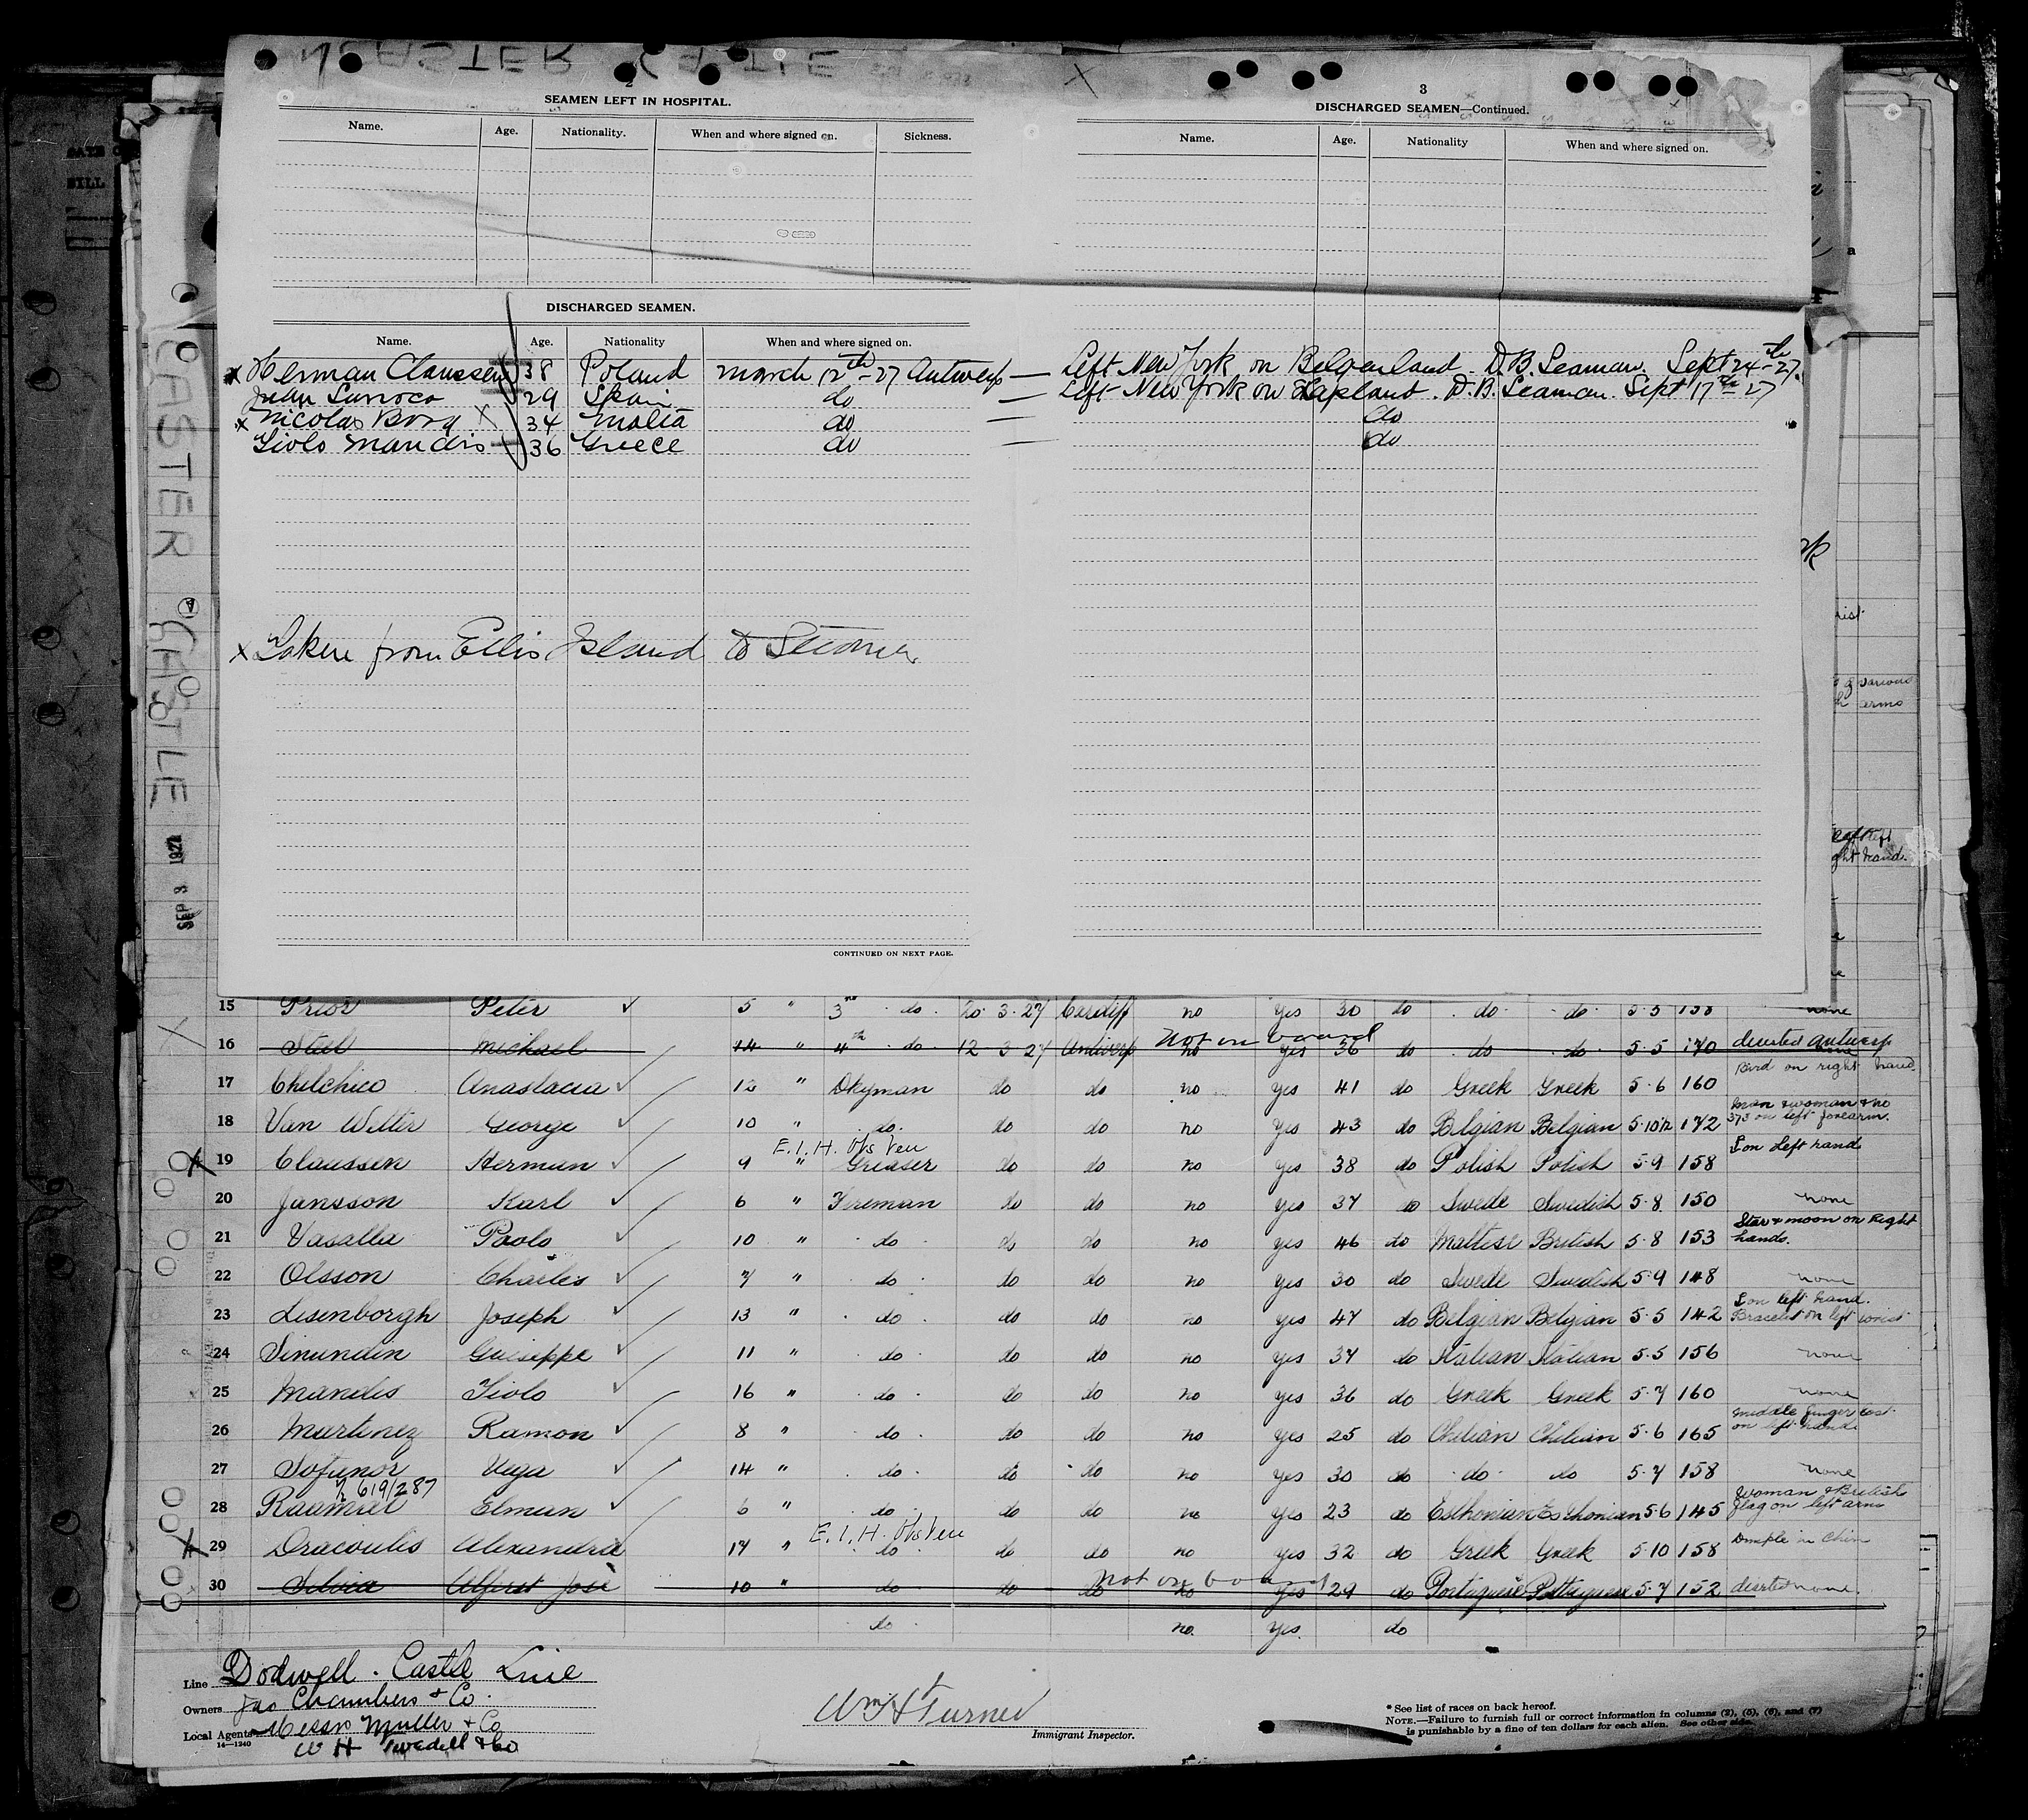 2
SEAMEN LEFT IN HOSPITAL.
Name. Age. Nationality. When and where signed on. Sickness.
3
DISCHARGED SEAMEN—Continued.
Name. Age. Nationality When and where signed on.
DISCHARGED SEAMEN.
Name. Age. Nationality When and where signed on.
x Herman Claussen 38 Poland March 12th-27 Antwerp — Left New York on Belgenland. D.B. Seaman. Sept 24th-27.
Juan 29 Spain do — Left New York on Lapland. D.B. Seaman. Sept 17th-27
x Nicolas Borg X 34 Malta do — do
Liolo Mandis 36 Greece do — do
x Taken from Ellis Island to Steamer
CONTINUED ON NEXT PAGE.
CASTER CASTLE
SEP 8 1927
15 Prior Peter ✓ 5 " 3rd do. 20 3.27 Cardiff no yes 30 do do do 5.5 158 none
16 Steel Michael 14 " 4th do 12 3 27 Antwerp Not on board no yes 36 do do do 5.5 170 deserted Antwerp
17 Chilchico Anastacia ✓ 12 " Dkyman do do no yes 41 do Greek Greek 5.6 160 Bird on right hand
18 Van Wetter George ✓ 10 " do. do do no yes 43 do Belgian Belgian 5.10½ 172 Man & woman & no 373 on left forearm.
E.I.H. Obs Ven
19 Claussen Herman ✓ 9 " Greaser do do no yes 38 do Polish Polish 5.9 158 I on Left hand
20 Jansson Karl ✓ 6 " Fireman do do no yes 37 do Swede Swedish 5.8 150 none
21 Vasalla Paolo ✓ 10 " do do do no yes 46 do Maltese British 5.8 153 Star & moon on Right hands.
22 Olsson Charles ✓ 7 " do do do no yes 30 do Swede Swedish 5.9 148 none
23 Lisenborgh Joseph ✓ 13 " do do do no yes 47 do Belgian Belgian 5.5 142 I on left hand. Bracelet on left wrist
24 Sinundin Guiseppe ✓ 11 " do do do no yes 37 do Italian Italian 5.5 156 none
25 Mandis Liolo ✓ 16 " do do do no yes 36 do Greek Greek 5.7 160 none
26 Martinez Ramon ✓ 8 " do do do no yes 25 do Chilian Chilian 5.6 165 middle finger lost on left hand
27 Sofanor Vega ✓ 14 " do do do no yes 30 do do do 5.7 158 none
619/287
28 Raamat Elman ✓ 6 " do do do no yes 23 do Esthonian Esthonian 5.6 145 Woman & British flag on left arm
E.I.H. Obs Ven
29 Dracoulis Alexandra 17 " do do do no yes 32 do Greek Greek 5.10 158 Dimple in Chin
30 Silvia Alfirst José 10 " do do do not on board no yes 29 do Portuguese Portuguese 5.7 152 deserted none.
do no. yes. do
Line Dodwell. Castle Line
Owners Jas Chambers & Co.
Local Agents Messrs Muller & Co
14—1240
W H & Co
Wm H Turner
Immigrant Inspector.
* See list of races on back hereof.
NOTE.—Failure to furnish full or correct information in columns (2), (5), (6), and (7)
is punishable by a fine of ten dollars for each alien. See other side.